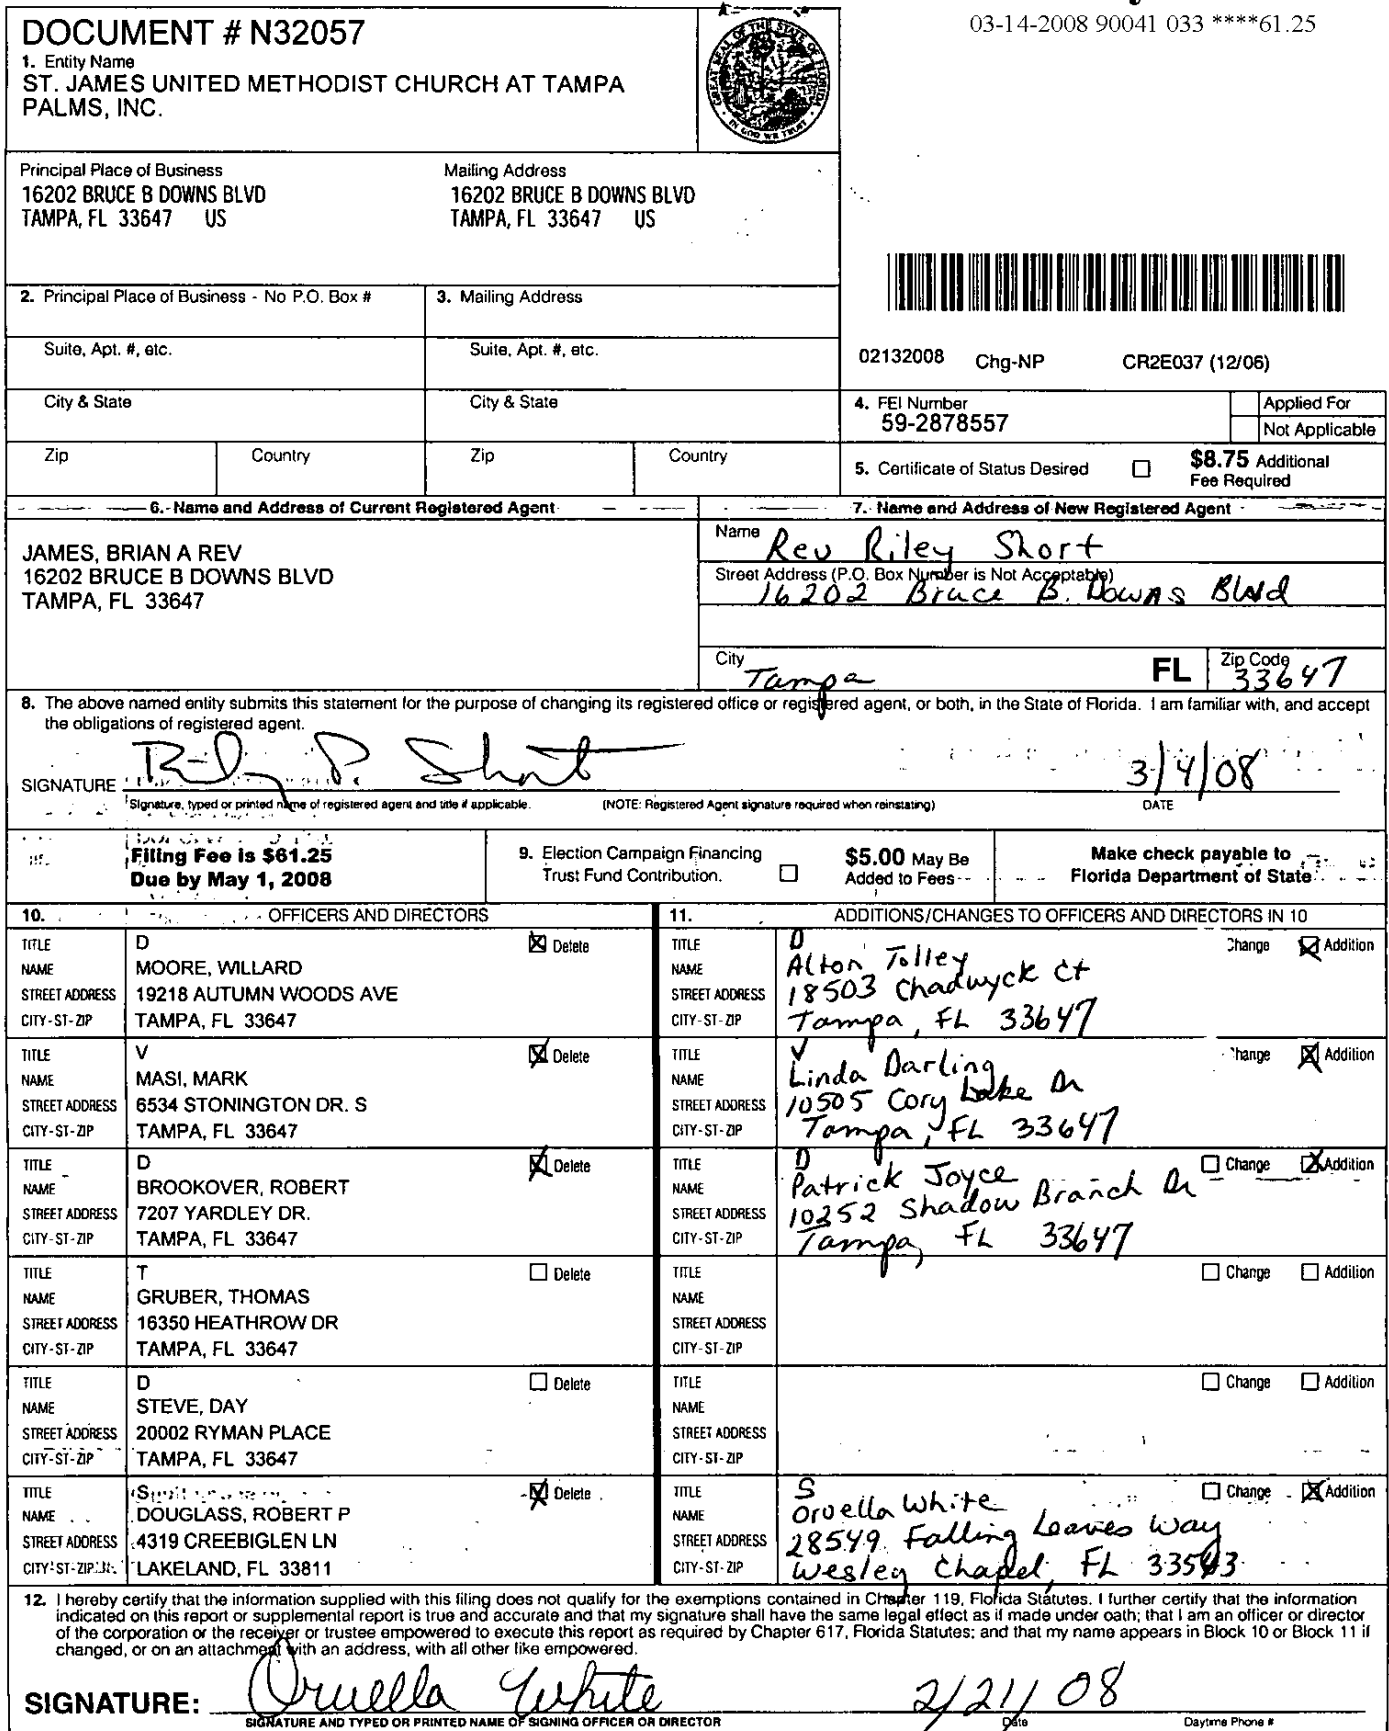 03-14-2008 90041 033 ****61.25
DOCUMENT # N32057
1. Entity Name
ST. JAMES UNITED METHODIST CHURCH AT TAMPA
PALMS, INC.
GREAT SEAL OF THE STATE OF FLORIDA
IN GOD WE TRUST
Principal Place of Business
16202 BRUCE B DOWNS BLVD
TAMPA, FL 33647 US
Mailing Address
16202 BRUCE B DOWNS BLVD
TAMPA, FL 33647 US
2. Principal Place of Business - No P.O. Box #
3. Mailing Address
Suite, Apt. #, etc.
Suite, Apt. #, etc.
City & State
City & State
Zip Country
Zip Country
02132008 Chg-NP CR2E037 (12/06)
4. FEI Number
59-2878557
Applied For
Not Applicable
5. Certificate of Status Desired
$8.75 Additional
Fee Required
6. Name and Address of Current Registered Agent
JAMES, BRIAN A REV
16202 BRUCE B DOWNS BLVD
TAMPA, FL 33647
7. Name and Address of New Registered Agent
Name Rev Riley Short
Street Address (P.O. Box Number is Not Acceptable)
16202 Bruce B. Downs Blvd
City Tampa FL Zip Code 33647
8. The above named entity submits this statement for the purpose of changing its registered office or registered agent, or both, in the State of Florida. I am familiar with, and accept
the obligations of registered agent.
SIGNATURE Riley P. Short 3/4/08
Signature, typed or printed name of registered agent and title if applicable. (NOTE: Registered Agent signature required when reinstating) DATE
Filing Fee is $61.25
Due by May 1, 2008
9. Election Campaign Financing
Trust Fund Contribution.
$5.00 May Be
Added to Fees
Make check payable to
Florida Department of State
10. OFFICERS AND DIRECTORS
11. ADDITIONS/CHANGES TO OFFICERS AND DIRECTORS IN 10
TITLE D Delete
NAME MOORE, WILLARD
STREET ADDRESS 19218 AUTUMN WOODS AVE
CITY-ST-ZIP TAMPA, FL 33647
TITLE D Change Addition
NAME Alton Tolley
STREET ADDRESS 18503 Chadwyck Ct
CITY-ST-ZIP Tampa, FL 33647
TITLE V Delete
NAME MASI, MARK
STREET ADDRESS 6534 STONINGTON DR. S
CITY-ST-ZIP TAMPA, FL 33647
TITLE V Change Addition
NAME Linda Darling
STREET ADDRESS 10505 Cory Lake Dr
CITY-ST-ZIP Tampa, FL 33647
TITLE D Delete
NAME BROOKOVER, ROBERT
STREET ADDRESS 7207 YARDLEY DR.
CITY-ST-ZIP TAMPA, FL 33647
TITLE D Change Addition
NAME Patrick Joyce
STREET ADDRESS 10252 Shadow Branch Dr
CITY-ST-ZIP Tampa, FL 33647
TITLE T Delete
NAME GRUBER, THOMAS
STREET ADDRESS 16350 HEATHROW DR
CITY-ST-ZIP TAMPA, FL 33647
TITLE Change Addition
NAME
STREET ADDRESS
CITY-ST-ZIP
TITLE D Delete
NAME STEVE, DAY
STREET ADDRESS 20002 RYMAN PLACE
CITY-ST-ZIP TAMPA, FL 33647
TITLE Change Addition
NAME
STREET ADDRESS
CITY-ST-ZIP
TITLE S Delete
NAME DOUGLASS, ROBERT P
STREET ADDRESS 4319 CREEBIGLEN LN
CITY-ST-ZIP LAKELAND, FL 33811
TITLE S Change Addition
NAME Oruella White
STREET ADDRESS 28549 Falling Leaves Way
CITY-ST-ZIP Wesley Chapel, FL 33543
12. I hereby certify that the information supplied with this filing does not qualify for the exemptions contained in Chapter 119, Florida Statutes. I further certify that the information
indicated on this report or supplemental report is true and accurate and that my signature shall have the same legal effect as if made under oath; that I am an officer or director
of the corporation or the receiver or trustee empowered to execute this report as required by Chapter 617, Florida Statutes; and that my name appears in Block 10 or Block 11 if
changed, or on an attachment with an address, with all other like empowered.
SIGNATURE: Oruella White 2/21/08
SIGNATURE AND TYPED OR PRINTED NAME OF SIGNING OFFICER OR DIRECTOR Date Daytime Phone #